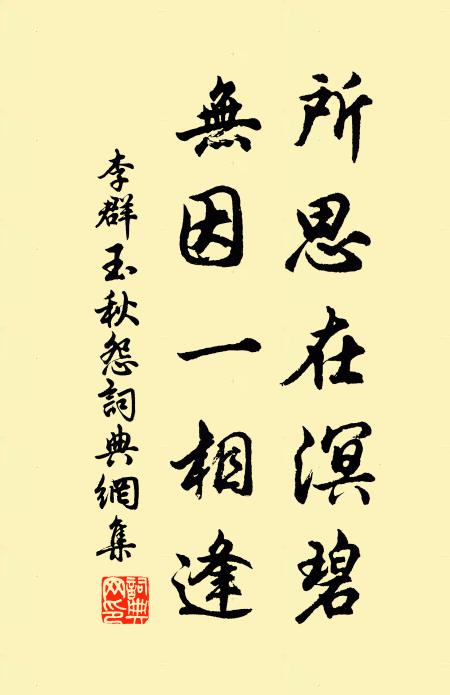 所思在溟碧
無因一相逢
李群玉秋怨詞典網集
詞典网印